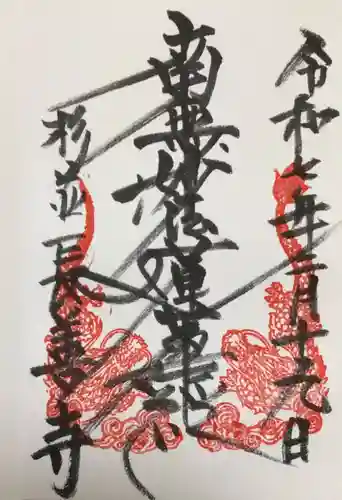 令和七年三月十九日
南無妙法蓮華経
杉並長善寺